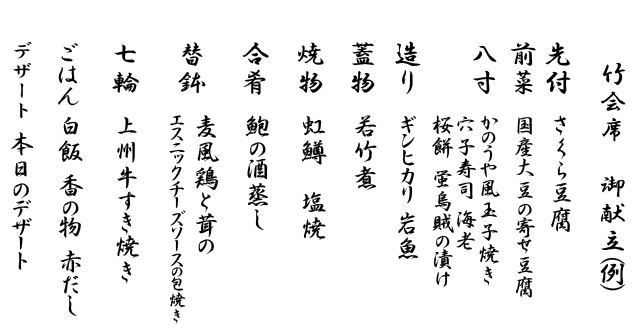 竹会席 御献立(例)
先付 さくら豆腐
前菜 国産大豆の寄せ豆腐
八寸 かのうや風玉子焼き
穴子寿司 海老
桜餅 蛍烏賊の漬け
造り ギンヒカリ 岩魚
蓋物 若竹煮
焼物 虹鱒 塩焼
合肴 鮑の酒蒸し
替鉢 麦風鶏と茸の
エスニックチーズソースの包焼き
七輪 上州牛すき焼き
ごはん 白飯 香の物 赤だし
デザート 本日のデザート